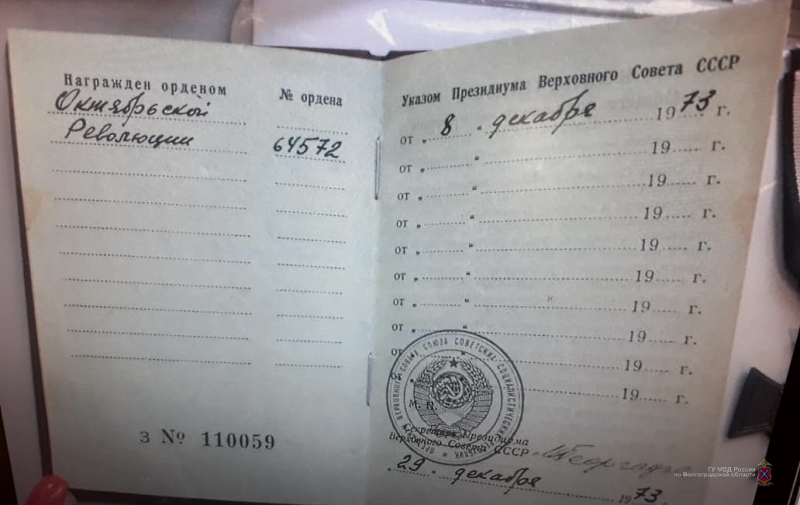 Награжден орденом
Октябрьской
Революции
№ ордена
64572
З № 110059
Указом Президиума Верховного Совета СССР
от „ 8 “ декабря 1973 г.
от „ “ 19 г.
от „ “ 19 г.
от „ “ 19 г.
от „ “ 19 г.
от „ “ 19 г.
от „ “ 19 г.
от „ “ 19 г.
от 19 г.
от 19 г.
М. П.
Секретарь Президиума
Верховного Совета СССР
29. декабря 1973.
ПРЕЗИДИУМ ВЕРХОВНОГО СОВЕТА СОЮЗА СОВЕТСКИХ СОЦИАЛИСТИЧЕСКИХ РЕСПУБЛИК
ГУ МВД России
по Волгоградской области